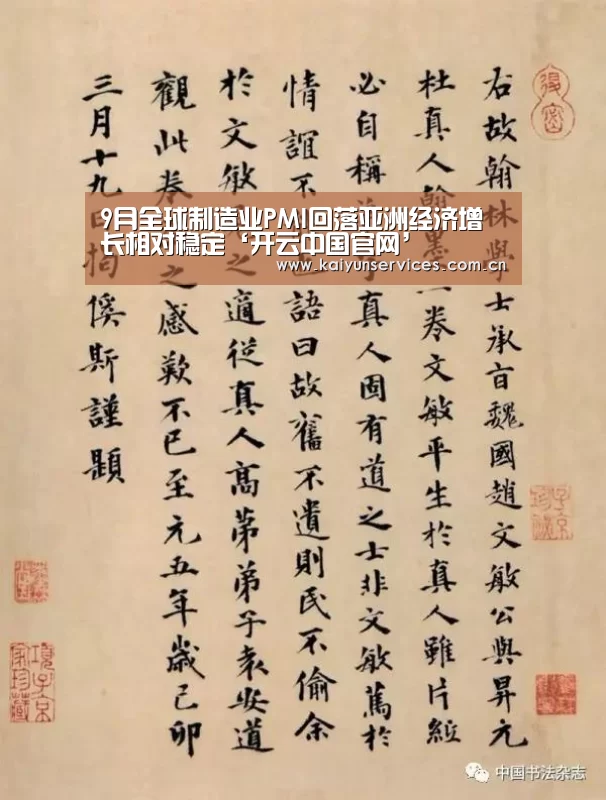 9月全球制造业PMI回落亚洲经济增
长相对稳定‘开云中国官网’
www.kaiyunservices.com.cn
右故翰林學士承旨魏國趙文敏公與昇元
杜真人翰墨一卷文敏平生於真人雖片紙
必自稱子真人固有道之士非文敏篤於
情誼不語曰故舊不遺則民不偷余
於文敏之適從真人高弟弟子袁安道
觀此卷之感歎不已至元五年歲己卯
三月十九日揭傒斯謹題
項子京家珍藏
中国书法杂志